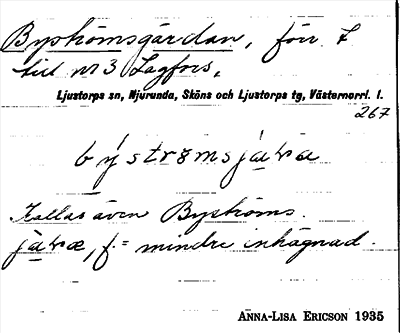 Byströmsgärdan, förr L
till nr 3 Lagfors,
Ljustorps sn, Njurunda, Sköns och Ljustorps tg, Västernorrl. l.
267
býstrømsja
Kallas även Byströms.
f. = mindre inhägnad.
ANNA-LISA ERICSON 1935